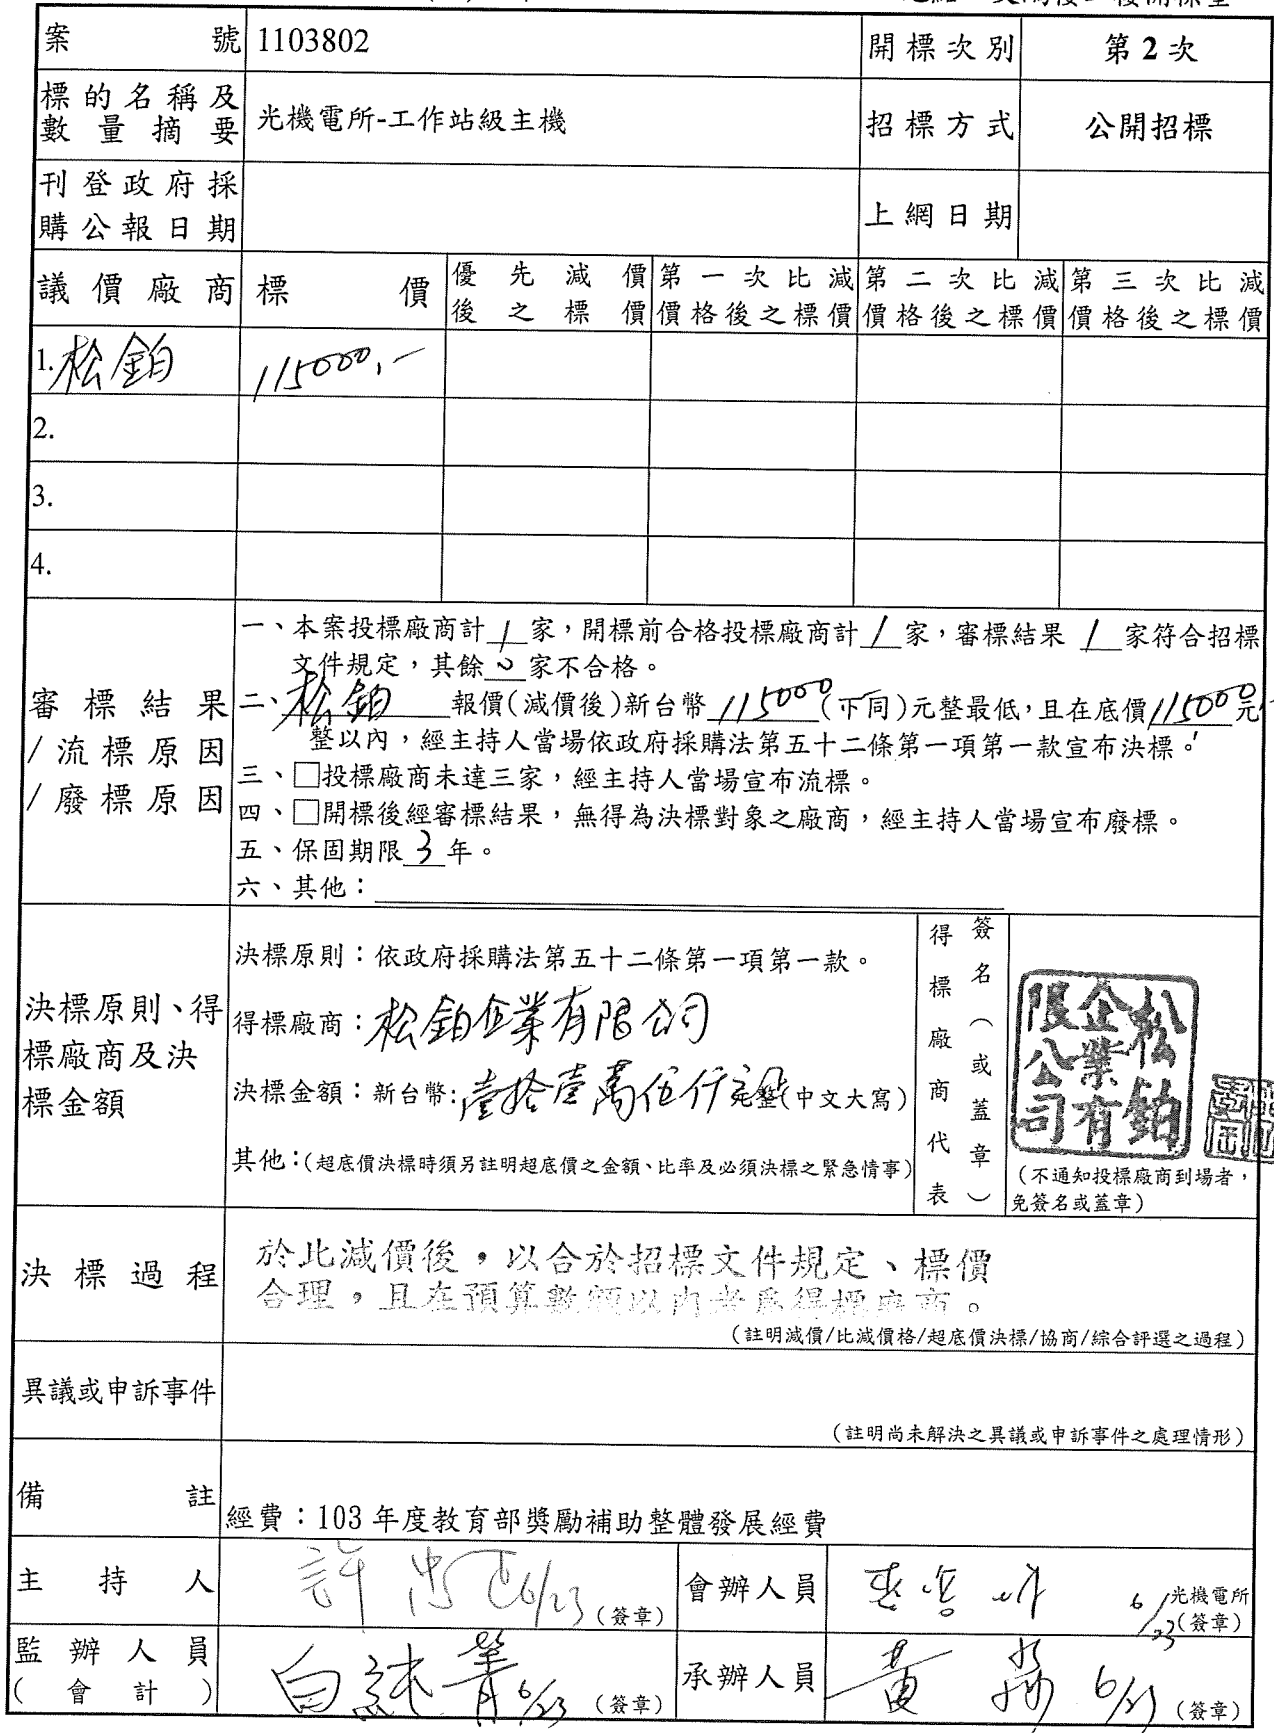 案號 1103802 開標次別 第2次
標的名稱及數量摘要 光機電所-工作站級主機 招標方式 公開招標
刊登政府採購公報日期 上網日期
議價廠商 標價 優先減價後之標價 第一次比減價格後之標價 第二次比減價格後之標價 第三次比減價格後之標價
1.松鉑 115000,-
2.
3.
4.
審標結果/流標原因/廢標原因
一、本案投標廠商計1家，開標前合格投標廠商計1家，審標結果 1家符合招標
文件規定，其餘0家不合格。
二、松鉑 報價(減價後)新台幣115000(下同)元整最低，且在底價115000元
整以內，經主持人當場依政府採購法第五十二條第一項第一款宣布決標。
三、□投標廠商未達三家，經主持人當場宣布流標。
四、□開標後經審標結果，無得為決標對象之廠商，經主持人當場宣布廢標。
五、保固期限3年。
六、其他：
決標原則、得標廠商及決標金額
決標原則：依政府採購法第五十二條第一項第一款。
得標廠商：松鉑企業有限公司
決標金額：新台幣:壹拾壹萬伍仟元整(中文大寫)
其他：(超底價決標時須另註明超底價之金額、比率及必須決標之緊急情事)
得標廠商代表
簽名（或蓋章）
松鉑
企業有
限公司
(不通知投標廠商到場者，
免簽名或蓋章)
決標過程
於比減價後，以合於招標文件規定、標價
合理，且在預算數額以內者為得標廠商。
(註明減價/比減價格/超底價決標/協商/綜合評選之過程)
異議或申訴事件
(註明尚未解決之異議或申訴事件之處理情形)
備註 經費：103 年度教育部獎勵補助整體發展經費
主持人 許 6/23 (簽章) 會辦人員 6/23 光機電所 (簽章)
監辦人員(會計) 白 6/23 (簽章) 承辦人員 黃 6/23 (簽章)